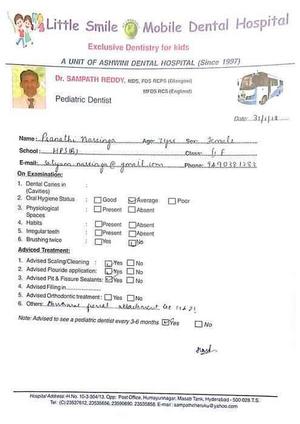 Little Smile Mobile Dental Hospital
Exclusive Dentistry for kids
A UNIT OF ASHWINI DENTAL HOSPITAL (Since 1997)
Dr. SAMPATH REDDY, MDS, FDS RCPS (Glasgow)
MFDS RCS (England)
Pediatric Dentist
Date: 31/1/18
Name: Pranathi Narsinga Age: 7yrs Sex: Female
School: Class:
E-mail: @gmail.com Phone:
On Examination:
1. Dental Caries in :
(Cavities)
2. Oral Hygiene Status : Good Average Poor
3. Physiological : Present Absent
Spaces
4. Habits : Present Absent
5. Irregular teeth : Present Absent
6. Brushing twice : Yes No
Adviced Treatment:
1. Advised Scaling/Cleaning : Yes No
2. Advised Flouride application: Yes No
3. Advised Pit & Fissure Sealants: Yes No
4. Advised Filling in
5. Advised Orthodontic treatment : Yes No
6. Others: frenal attachment
Note: Advised to see a pediatric dentist every 3-6 months Yes No
Hospital Address: H.No. 10-3-304/13, Opp: Post Office, Humayunnagar, Masab Tank, Hyderabad - 500 028 T.S.
Tel: (C) 23537612, 23535656, 23590690, 23535858. E-mail: sampathcheruku@yahoo.com